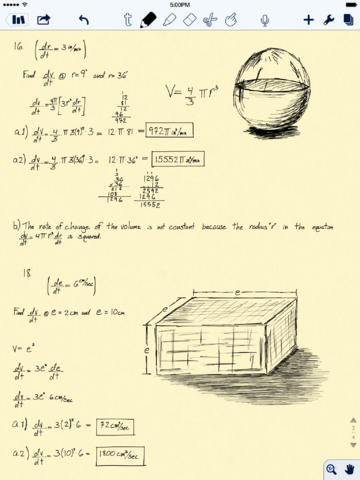 5:00PM
16. (dr/dt = 3 in/min)
Find dv/dt @ r=9" and r=36"
V= 4/3 πr³
dv/dt = 4π/3 [3r² dr/dt]
12
81
12
96
972
a.1) dv/dt = 4/3 π 3(9)² · 3 = 12 π 81 = 972π in³/min
a.2) dv/dt = 4/3 π 3(36)² · 3 = 12 π 36² = 15552π in³/min
36
36
216
108
1296
1296
12
2592
1296
15552
b) The rate of change of the volume is not constant because the radius "r" in the equation
dv/dt = 4πr² dr/dt is squared.
18
(de/dt = 6 cm/sec)
Find dv/dt @ e = 2cm and e = 10cm
e
e
e
V= e³
dv/dt = 3e² de/dt
dv/dt = 3e² 6cm/sec
a.1) dv/dt = 3(2)² 6 = 72cm/sec
a.2) dv/dt = 3(10)² 6 = 1800cm³/sec